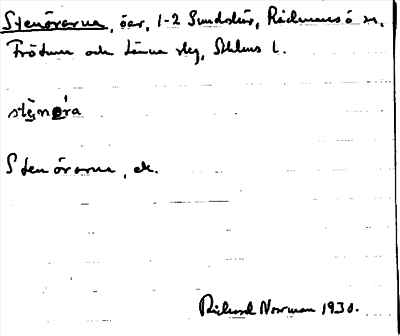 Stenörarna, öar, 1-2 Sundskär, Rådmansö sn,
Frötuna och Länna slg, Sthlms l.
stęnǿra
Stenörarna, ek.
Rickard Norrman 1930.